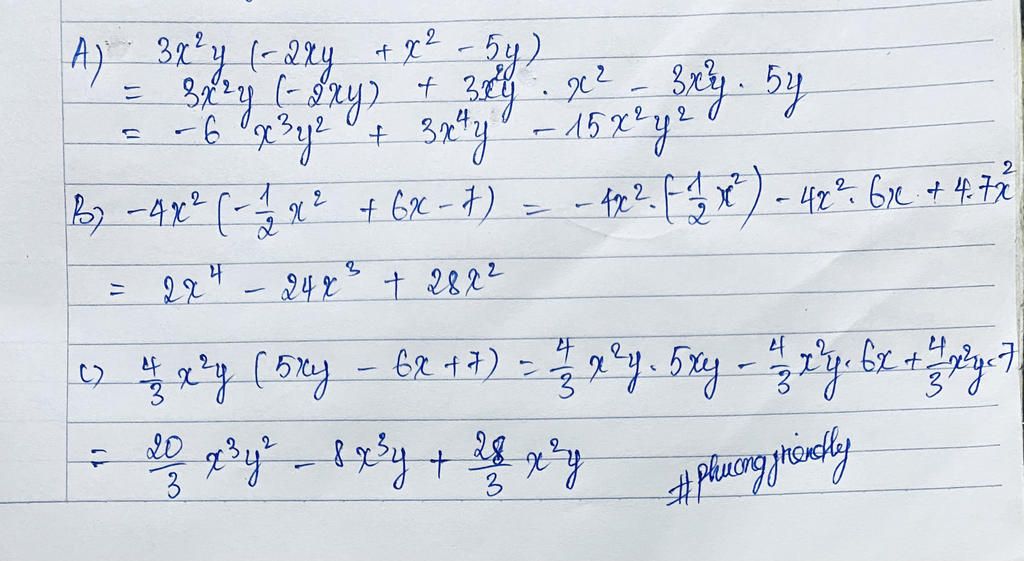 A) 3x²y (-2xy + x² - 5y)
= 3x²y (-2xy) + 3x²y . x² - 3x²y . 5y
= -6 x³y² + 3x⁴y - 15x²y²
B) -4x² (-1/2 x² + 6x - 7) = -4x² . (-1/2 x²) - 4x² . 6x + 4.7x²
= 2x⁴ - 24x³ + 28x²
C) 4/3 x²y (5xy - 6x + 7) = 4/3 x²y . 5xy - 4/3 x²y . 6x + 4/3 x²y . 7
= 20/3 x³y² - 8x³y + 28/3 x²y
#phuongfriendly